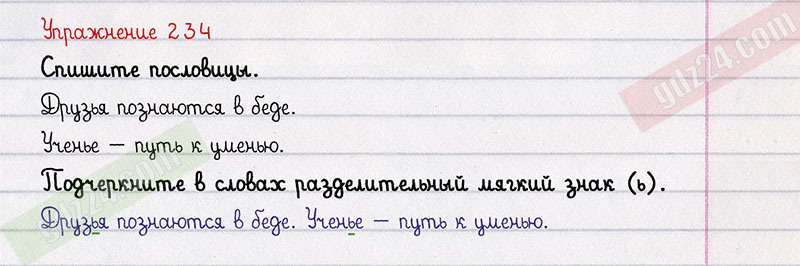 Упражнение 234
Спишите пословицы.
Друзья познаются в беде.
Ученье – путь к уменью.
Подчеркните в словах разделительный мягкий знак (ь).
Друзья познаются в беде. Ученье – путь к уменью.
gdz24.com
gdz24.com